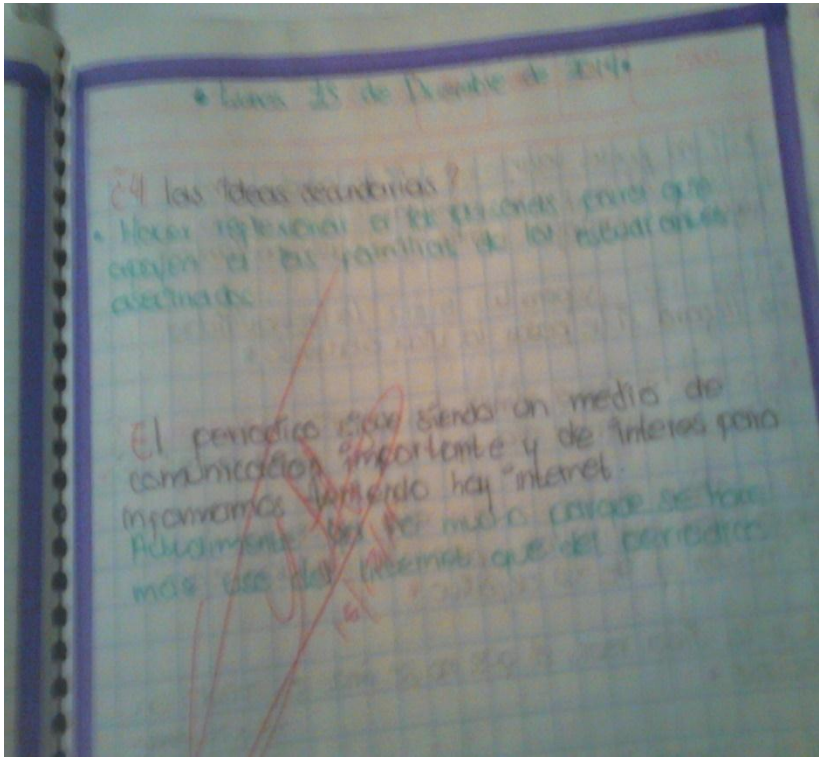 • Lunes 15 de Diciembre de 2014.
¿Y las ideas secundarias?
• Hacer reflexionar a las personas para que
apoyen a las familias de los estudiantes
asecinados.
El periodico sigue siendo un medio de
comunicacion importante y de interes para
informarnos teniendo hay internet.
Actualmente no por mucho porque se hace
mas uso del internet que del periodico